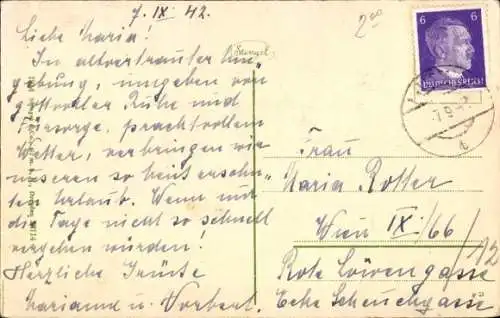 7. IX 42.
Liebe Maria!
In altvertrauter Um-
gebung, umgeben von
gottvoller Ruhe und
Fürsorge, prachtvollem
Wetter, verbringen wir
unseren so heiß ersehn-
ten Urlaub. Wenn nur
die Tage nicht so schnell
vergehen würden!
Herzliche Grüße
Marianne u. Norbert.
200
6 6
7.9.42
Frau
Maria Rotter
Wien IX/66
Rote Löwengasse /12
Ecke Scheuchgasse